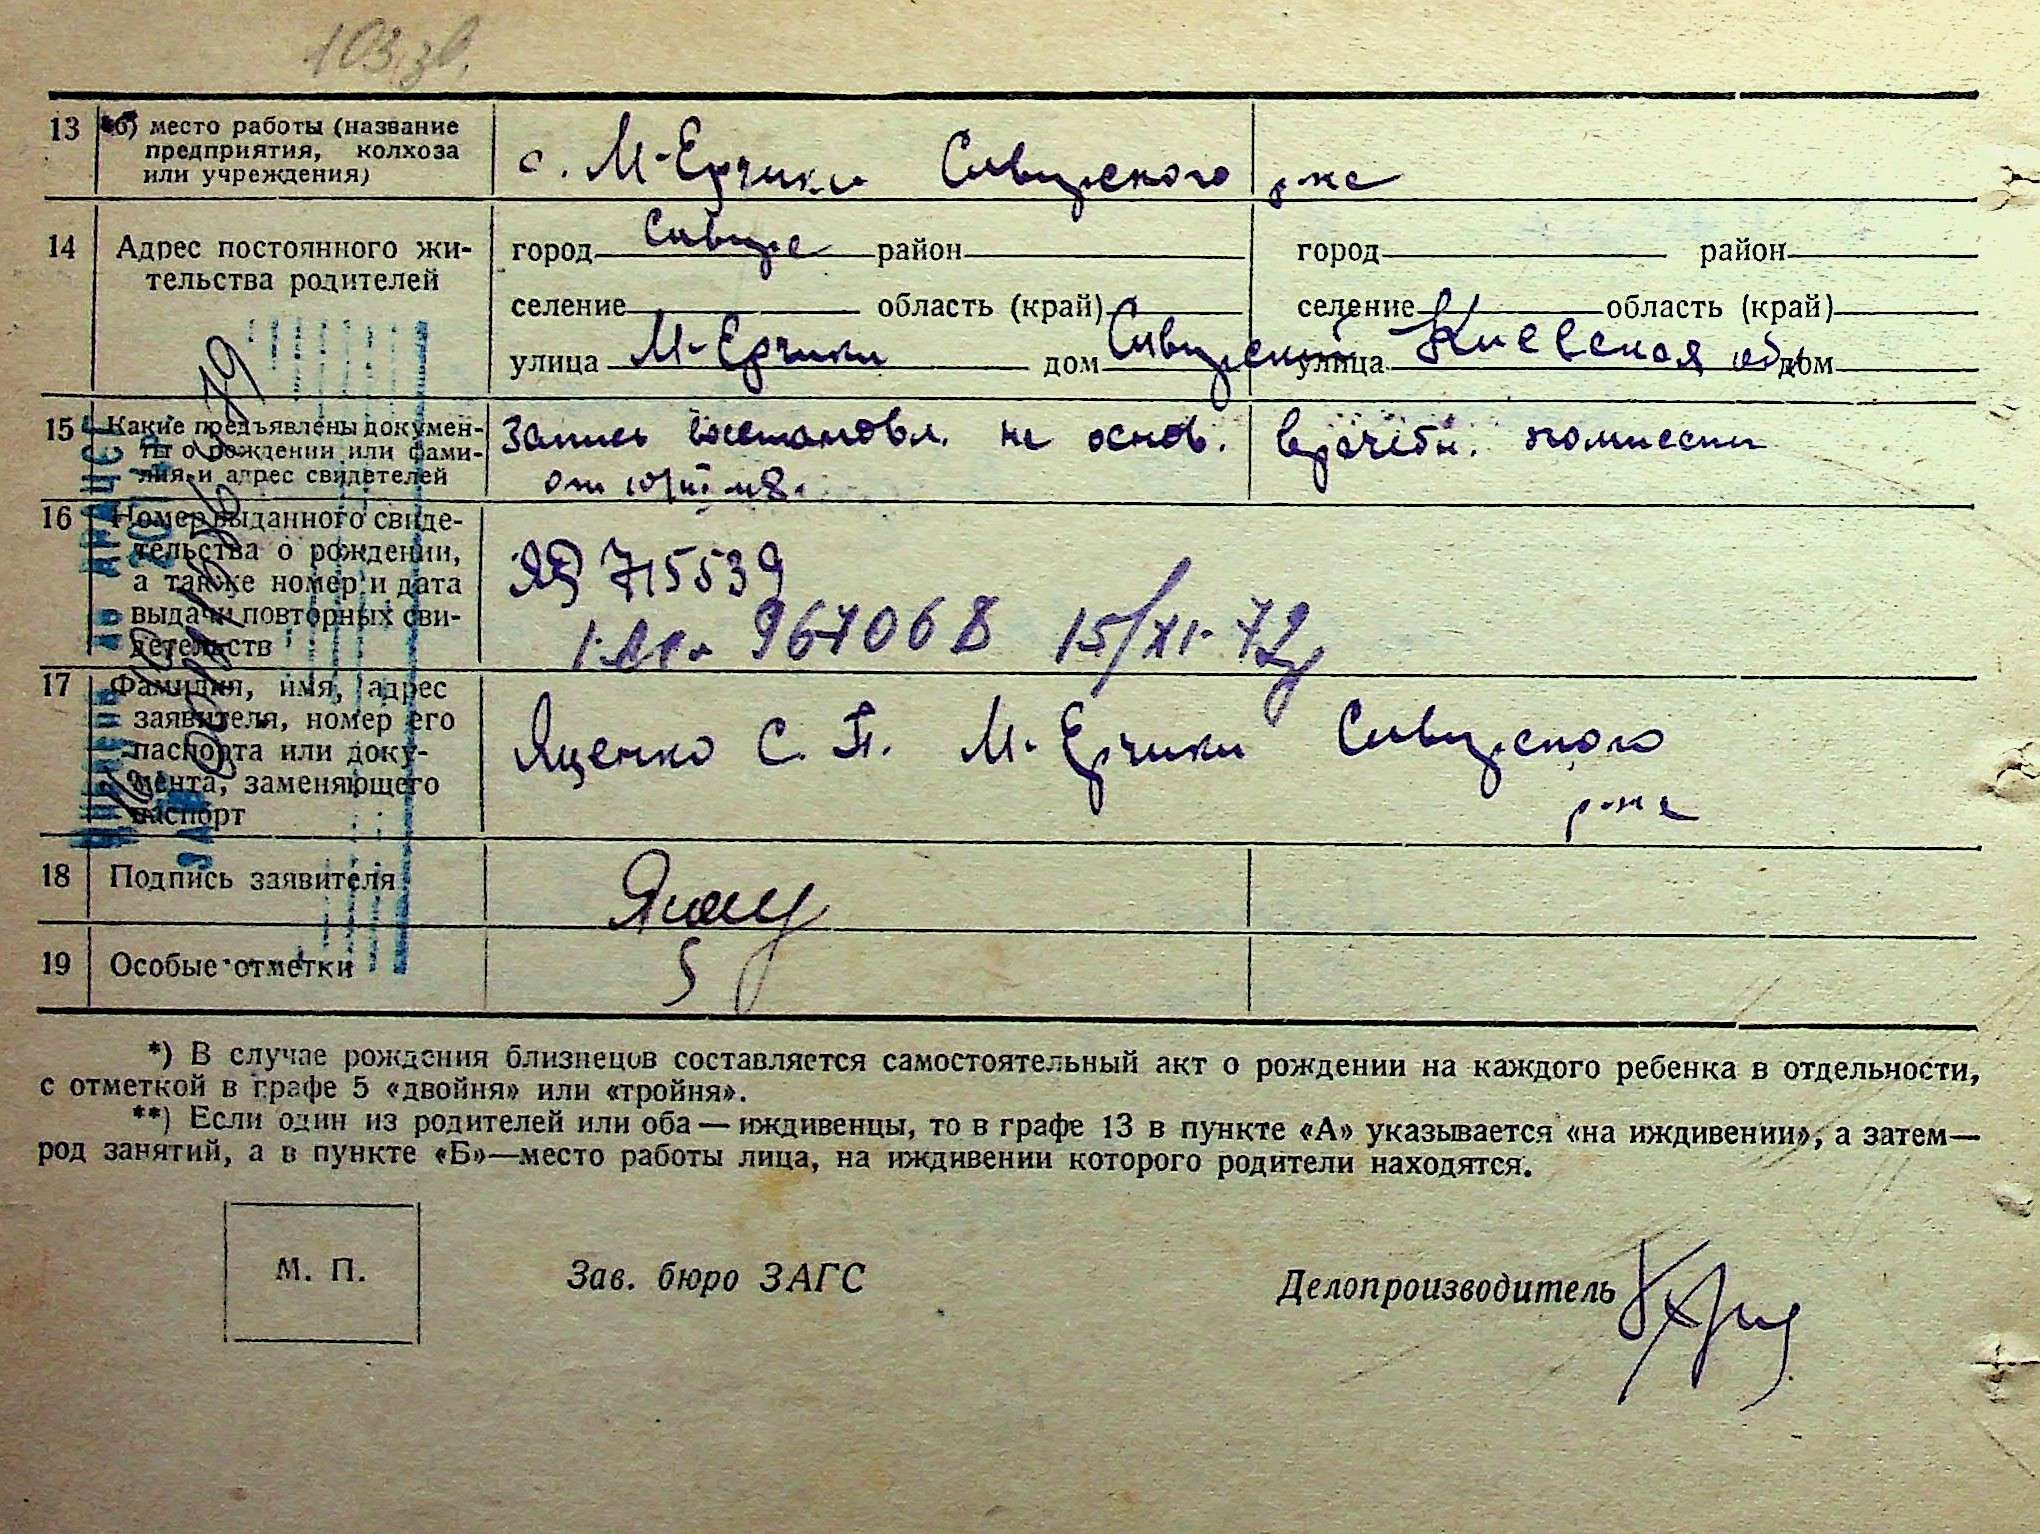 103 зв.
13 б) место работы (название
предприятия, колхоза
или учреждения)
с. М-Ерчики Сквирского р-на
14 Адрес постоянного жи-
тельства родителей
город Сквира район
селение область (край)
улица М-Ерчики дом Сквирский
город район
селение область (край)
улица Киевская обл дом
15 Какие предъявлены докумен-
ты о рождении или фами-
лия и адрес свидетелей
Запись восстановл. на основ. врачебн. комиссии
от
16 Номер выданного свиде-
тельства о рождении,
а также номер и дата
выдачи повторных сви-
детельств
715539
967068 15/XI-72г
17 Фамилия, имя, адрес
заявителя, номер его
паспорта или доку-
мента, заменяющего
паспорт
Яценко С. П. М-Ерчики Сквирского
р-на
18 Подпись заявителя
19 Особые отметки
*) В случае рождения близнецов составляется самостоятельный акт о рождении на каждого ребенка в отдельности,
с отметкой в графе 5 «двойня» или «тройня».
**) Если один из родителей или оба — иждивенцы, то в графе 13 в пункте «А» указывается «на иждивении», а затем—
род занятий, а в пункте «Б»—место работы лица, на иждивении которого родители находятся.
М. П.
Зав. бюро ЗАГС
Делопроизводитель